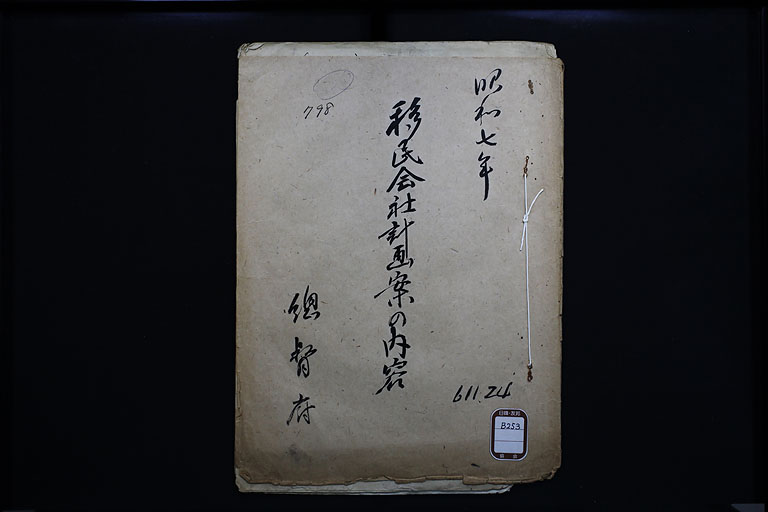 昭和七年
移民会社計画案の内容
総督府
798
611.24
B253